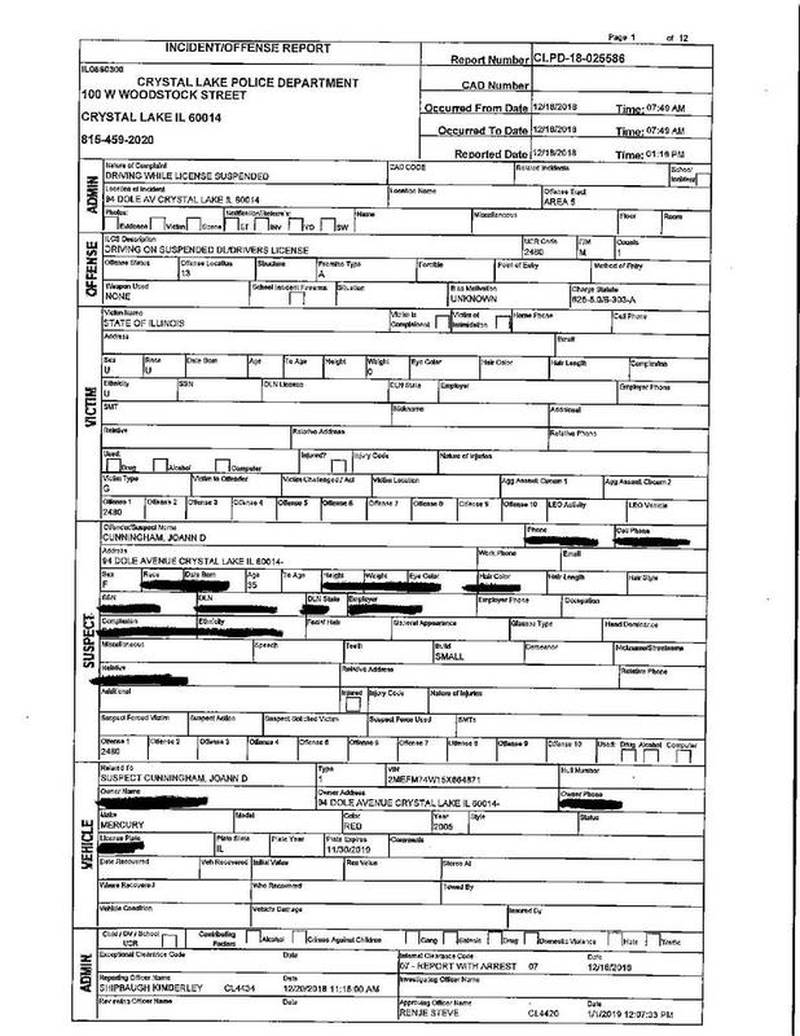 Page 1 of 12
INCIDENT/OFFENSE REPORT
Report Number CLPD-18-025586
IL0560300
CRYSTAL LAKE POLICE DEPARTMENT
CAD Number
100 W WOODSTOCK STREET
Occurred From Date 12/18/2018 Time: 07:49 AM
CRYSTAL LAKE IL 60014
Occurred To Date 12/18/2018 Time: 07:49 AM
815-459-2020
Reported Date 12/18/2018 Time: 01:16 PM
ADMIN
Nature of Complaint CAD CODE Related Incidents School Incident
DRIVING WHILE LICENSE SUSPENDED
Location of Incident Location Name Offense Tract
94 DOLE AV CRYSTAL LAKE IL 60014 AREA 5
Photos: Name Miscellaneous Floor Room
Evidence Victim Scene ET INV YO SW
OFFENSE
ILCS Description UCR Code F/M Counts
DRIVING ON SUSPENDED DL/DRIVERS LICENSE 2480 M 1
Offense Status Offense Location Structure Premise Type Forcible Point of Entry Method of Entry
13 A
Weapon Used School Incident Firearms Situation Bias Motivation Charge Statute
NONE UNKNOWN
VICTIM
Victim Name Victim is Complainant Victim of Intimidation Home Phone Cell Phone
STATE OF ILLINOIS
Address Email
Sex Race Date Born Age To Age Height Weight Eye Color Hair Color Hair Length Complexion
U U 0
Ethnicity SSN DLN License DLN State Employer Employer Phone
U
SMT Nickname Additional
Relative Relative Address Relative Phone
Used: Injured? Injury Code Nature of Injuries
Drug Alcohol Computer
Victim Type Victim to Offender Victim Challenged / Act Victim Location Agg Assault Circum 1 Agg Assault Circum 2
G
Offense 1 Offense 2 Offense 3 Offense 4 Offense 5 Offense 6 Offense 7 Offense 8 Offense 9 Offense 10 LEO Activity LEO Vehicle
2480
SUSPECT
Offender/Suspect Name Phone Cell Phone
CUNNINGHAM, JOANN D
Address Work Phone Email
94 DOLE AVENUE CRYSTAL LAKE IL 60014-
Sex Race Date Born Age To Age Height Weight Eye Color Hair Color Hair Length Hair Style
F 35
SSN DLN DLN State Employer Employer Phone Occupation
Complexion Ethnicity Facial Hair General Appearance Glasses Type Hand Dominance
Miscellaneous Speech Teeth Build Demeanor Nickname/Streetname
SMALL
Relative Relative Address Relative Phone
Additional Injured Injury Code Nature of Injuries
Suspect Forced Victim Suspect Action Suspect Solicited Victim Suspect Force Used SMTs
Offense 1 Offense 2 Offense 3 Offense 4 Offense 5 Offense 6 Offense 7 Offense 8 Offense 9 Offense 10 Used: Drug Alcohol Computer
2480
VEHICLE
Related To Type VIN Hull Number
SUSPECT CUNNINGHAM, JOANN D 1 2MEFM74W15X664871
Owner Name Owner Address Owner Phone
94 DOLE AVENUE CRYSTAL LAKE IL 60014-
Make Model Color Year Style Status
MERCURY RED 2005
License Plate Plate State Plate Year Plate Expires Comments
IL 11/30/2019
Date Recovered Veh Recovered Initial Value Rec Value Stored At
Where Recovered Who Recovered Towed By
Vehicle Condition Vehicle Damage Insured By
ADMIN
Child / DV / School UCR Contributing Factors Alcohol Crimes Against Children Gang Drug Domestic Violence Hate Traffic
Exceptional Clearance Code Date Internal Clearance Code Date
07 - REPORT WITH ARREST 07 12/18/2018
Reporting Officer Name Date Investigating Officer Name
SHIPBAUGH KIMBERLEY CL4434 12/20/2018 11:18:00 AM
Reviewing Officer Name Date Approving Officer Name Date
RENJE STEVE CL4420 1/1/2019 12:07:33 PM